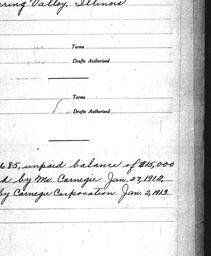 ring Valley, Illinois
Terms
Drafts Authorized
Terms
Drafts Authorized
685, unpaid balance of $15,000
d by Mr. Carnegie Jan. 27, 1912,
by Carnegie Corporation Jan. 2, 1913